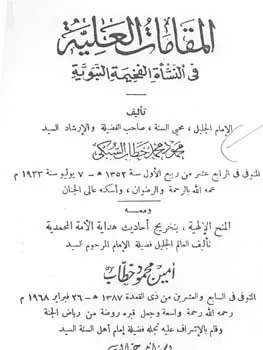 المقامات العلية
فى النشأة الفخيمة النبوية
تأليف
الإمام الجليل ، محيى السنة ، صاحب الفضيلة والإرشاد السيد
محمود محمد خطاب السبكى
المتوفى فى الرابع عشر من ربيع الأول سنة ١٣٥٢ هـ - ٧ يوليو سنة ١٩٣٣ م
عمه الله بالرحمة والرضوان ، وأسكنه عالى الجنان
ومعه
المنح الإلهية ، بتخريج أحاديث هداية الأمة المحمدية
تأليف العالم الجليل فضيلة الإمام المرحوم السيد
أمين محمود خطاب
المتوفى فى السابع والعشرين من ذى القعدة ١٣٨٧ هـ - ٢٦ فبراير ١٩٦٨ م
رحمه الله رحمة واسعة وجعل قبره روضة من رياض الجنة
وقام بالإشراف عليه نجله فضيلة إمام أهل السنة السيد